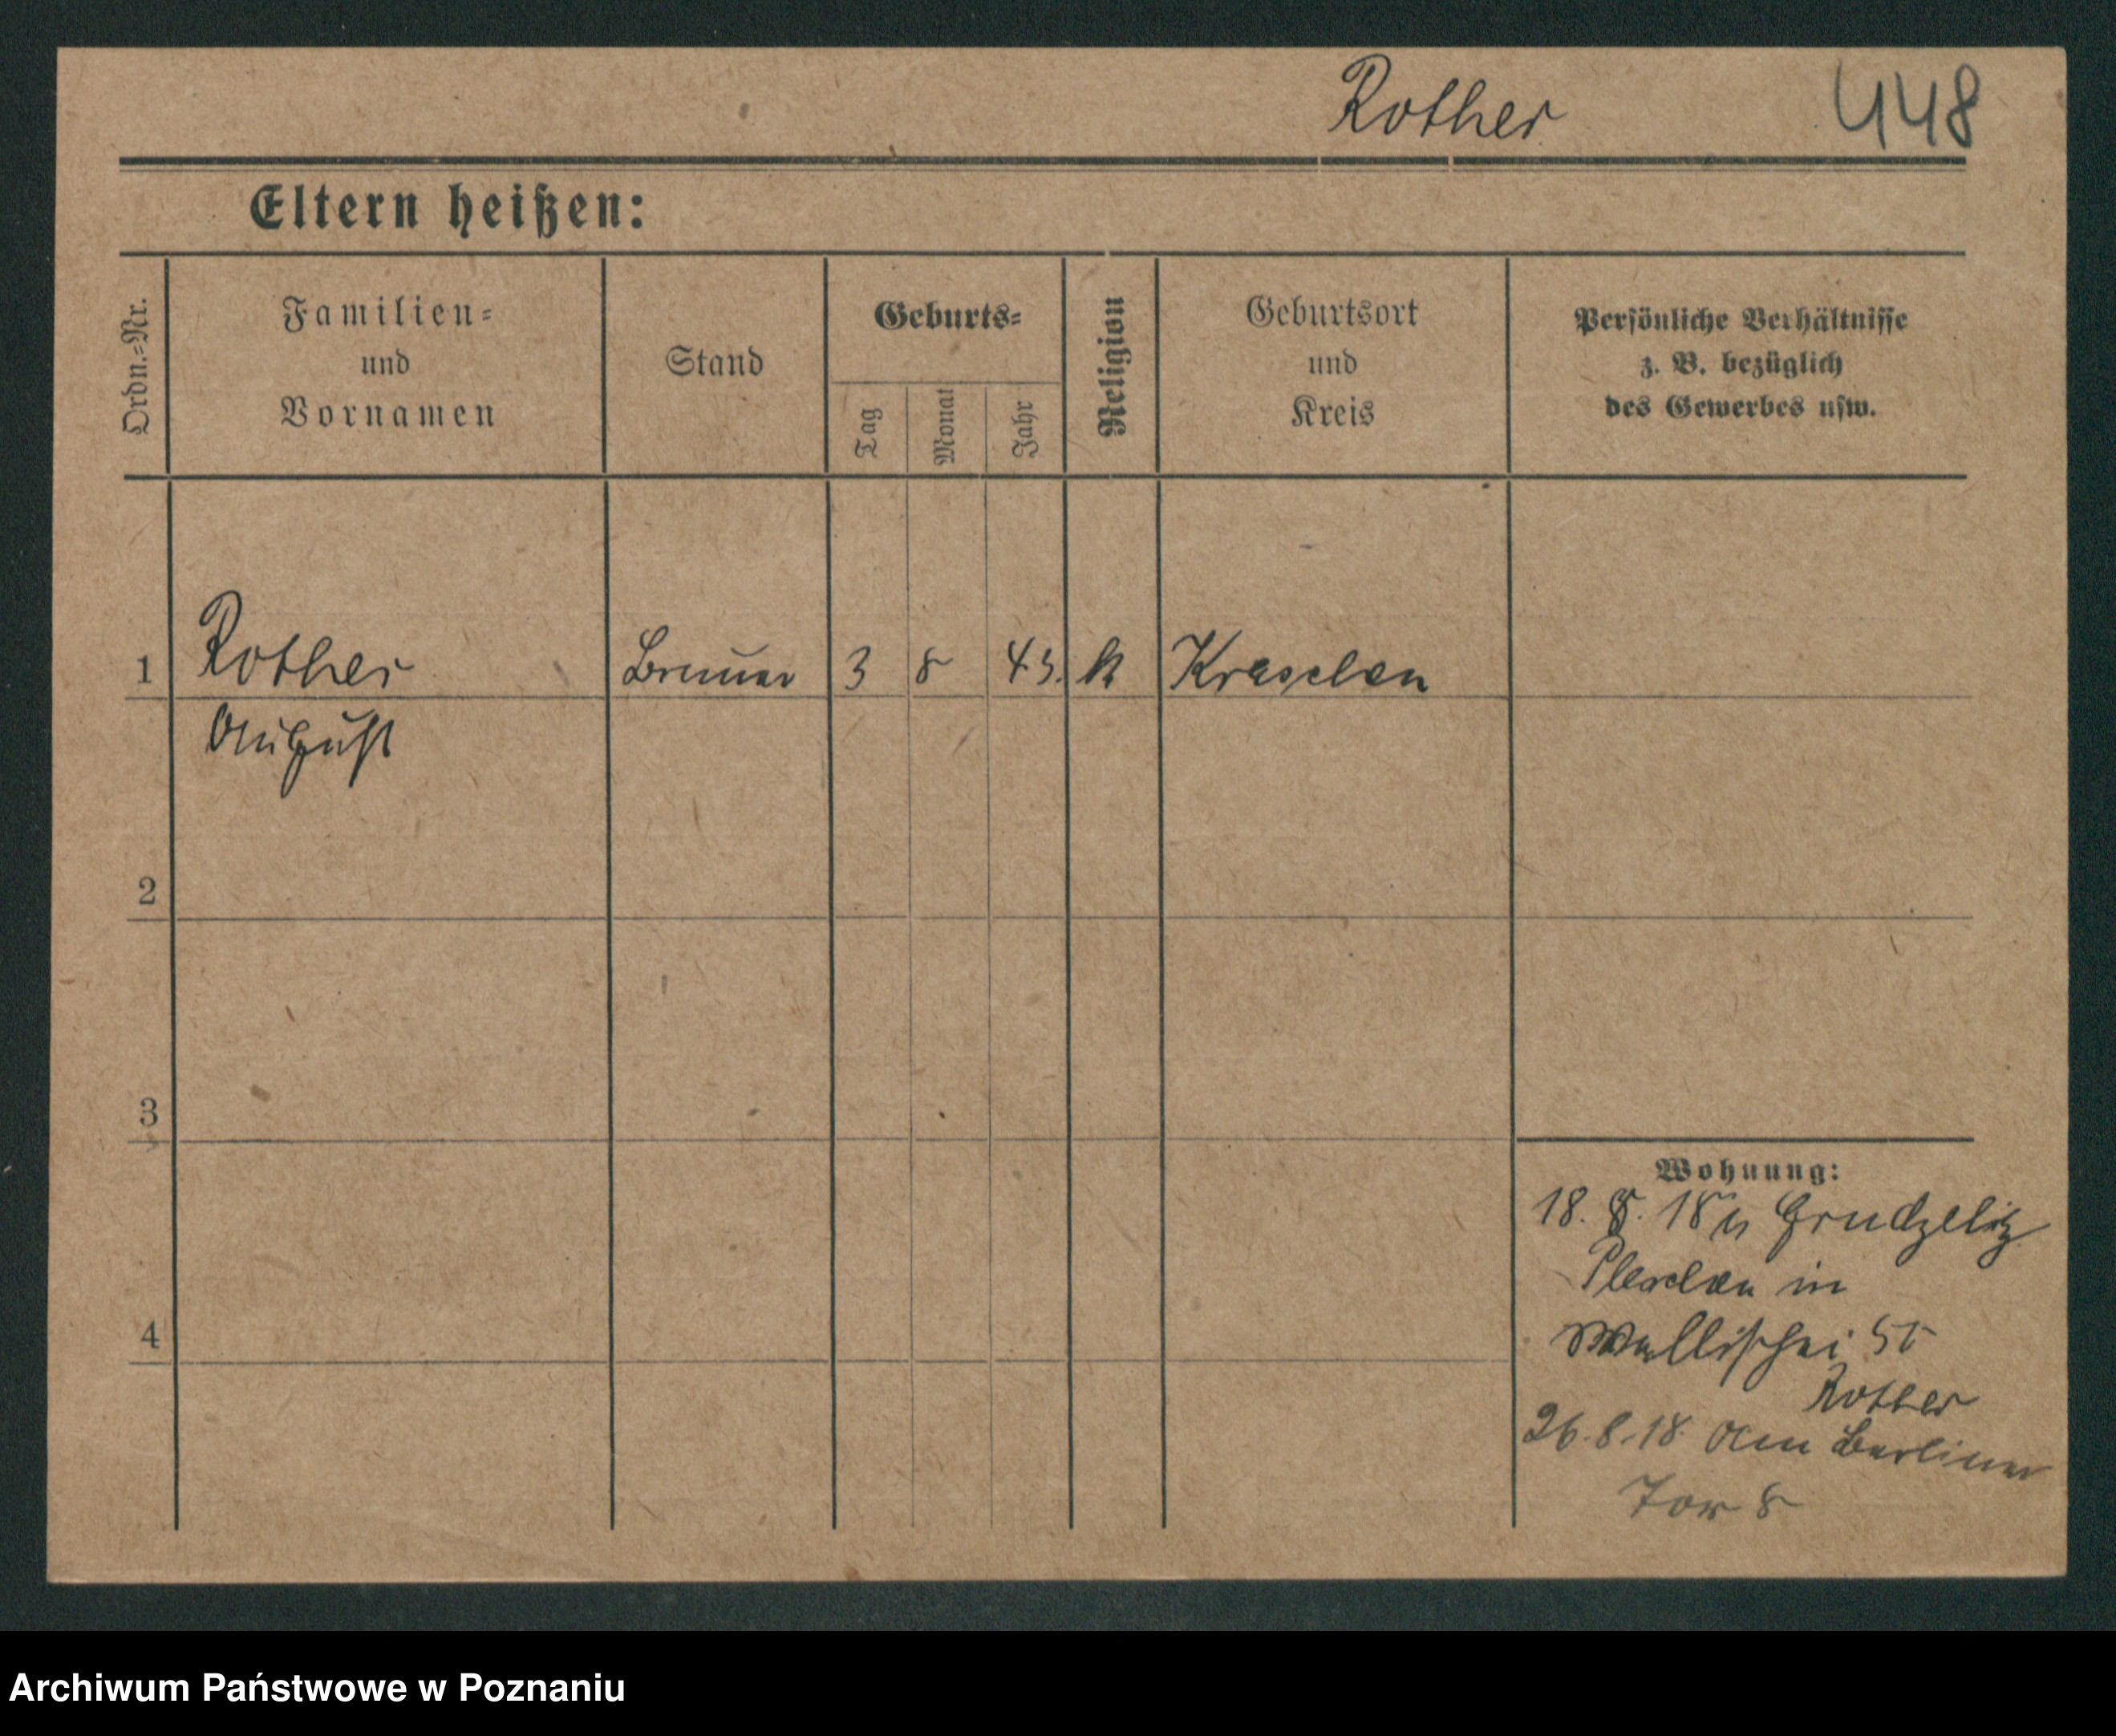 Rother 448
Eltern heißen:
Ordn.=Nr.
Familien=
und
Vornamen
Stand
Geburts=
Tag
Monat
Jahr
Religion
Geburtsort
und
Kreis
Persönliche Verhältnisse
z. B. bezüglich
des Gewerbes usw.
1 Rother 3 8 43. k
August
2
3
4
Wohnung:
18. 8. 18 Grudzelitz
Pleschen in
Wallischei
Rother
26.8.18 Am Berliner
Tor 8
Archiwum Państwowe w Poznaniu